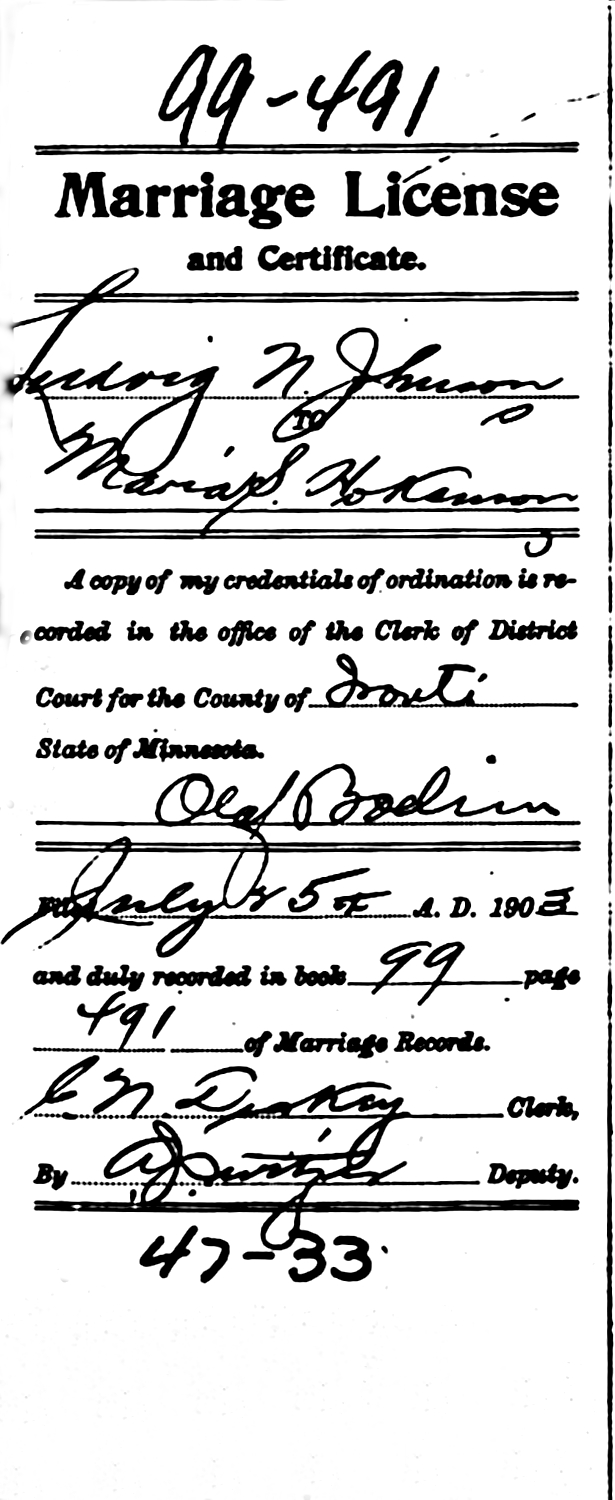 99-491
Marriage License
and Certificate.
Ludvig N. Johnson
TO
Maria S. Hokanson
A copy of my credentials of ordination is re-
corded in the office of the Clerk of District
Court for the County of Isanti
State of Minnesota.
Olof Bodin
Filed July 25th A. D. 1903
and duly recorded in book 99 page
491 of Marriage Records.
C. N. Dickey Clerk,
By A. J. Switzer Deputy.
47-33